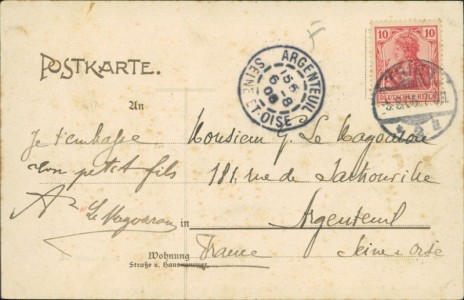 POSTKARTE.
ARGENTEUL
SEINE-ET-OISE
15 6
6-8
06
10 10
DEUTSCHES REICH
An
Je t'embrasse
ton petit fils
A Le Magoarou
Monsieur J. Le Magoarou
181, rue de Sartrouville
in Argenteuil
France Seine & Oise
Wohnung
Straße u. Hausnummer.